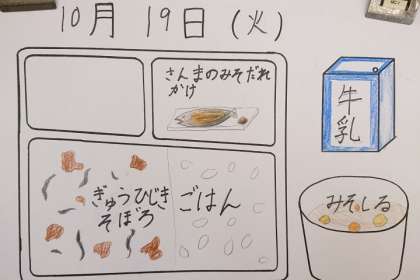 10月 19日 (火)
さんまのみそだれ
かけ
牛
乳
ぎゅうひじき
そぼろ
ごはん
みそしる